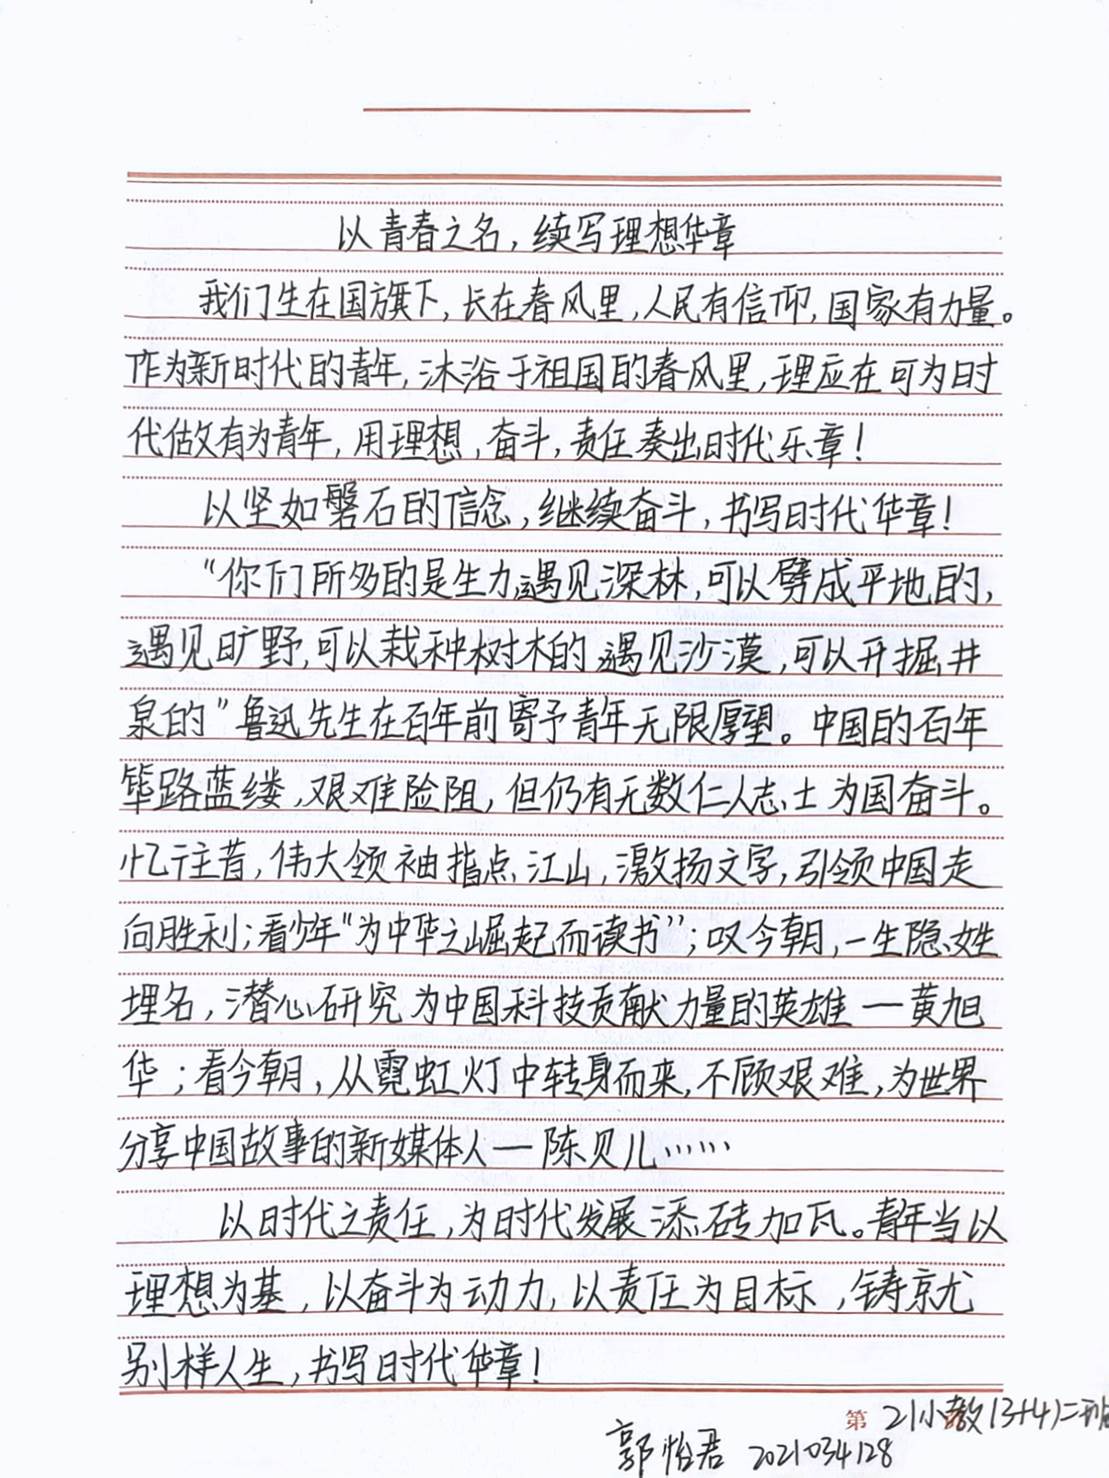 以青春之名，续写理想华章
我们生在国旗下，长在春风里，人民有信仰，国家有力量。
作为新时代的青年，沐浴于祖国的春风里，理应在可为时
代做有为青年，用理想，奋斗，责任奏出时代乐章！
以坚如磐石的信念，继续奋斗，书写时代华章！
“你们所多的是生力，遇见深林，可以劈成平地的，
遇见旷野，可以栽种树木的 遇见沙漠，可以开掘井
泉的”鲁迅先生在百年前寄予青年无限厚望。中国的百年
筚路蓝缕，艰难险阻，但仍有无数仁人志士为国奋斗。
忆往昔，伟大领袖指点江山，激扬文字，引领中国走
向胜利；看少年“为中华之崛起而读书”；叹今朝，一生隐姓
埋名，潜心研究为中国科技贡献力量的英雄一黄旭
华；看今朝，从霓虹灯中转身而来，不顾艰难，为世界
分享中国故事的新媒体人一陈贝儿……
以时代之责任，为时代发展添砖加瓦。青年当以
理想为基，以奋斗为动力，以责任为目标，铸就
别样人生，书写时代华章！
第 21小教(3+4)二班
郭怡君 2021034128